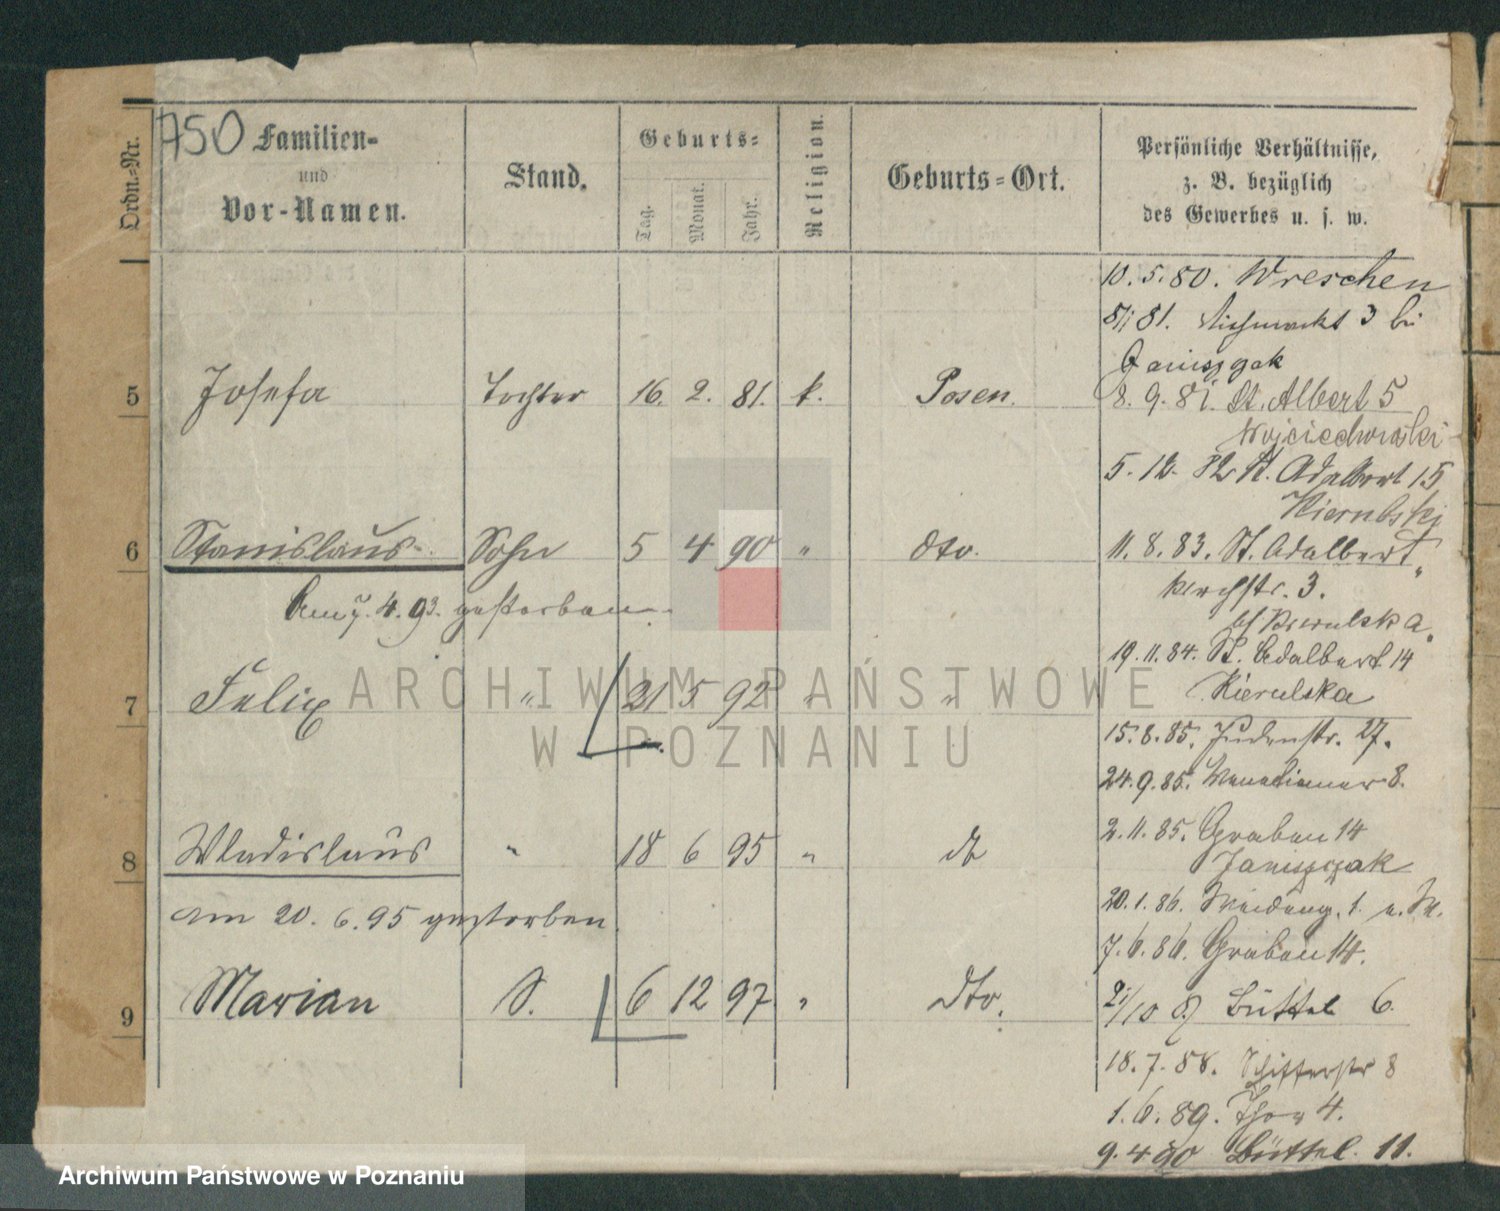 750
Ordn.-Nr.
Familien-
und
Vor-Namen.
Stand.
Geburts-
Tag.
Monat.
Jahr.
Religion.
Geburts-Ort.
Persönliche Verhältnisse,
z. B. bezüglich
des Gewerbes u. s. w.
10. 5. 80. Wreschen
81. 3 bei
Janiszczak
5 Josefa Tochter 16. 2. 81. k. Posen.
8. 9. 81. St. Albert 5
Wojciechowski
5. 12. 82 St. Adalbert 15
6 Stanislaus Sohn 5 4 90 " dto.
11. 8. 83. St. Adalbert
kirchstr. 3.
Am 7. 4. 93. gestorben.
19. 11. 84. St. Adalbert 14
Kierulska
7 Felix " 21 5 92 " "
15. 8. 85. Judenstr. 27.
24. 9. 85. Venetianer 8.
2. 11. 85. Graben 14
Janiszczak
8 Wladislaus " 18 6 95 " dt
20. 1. 86.
am 20. 6. 95 gestorben.
7. 6. 86. Graben 14.
9 Marian S. 6 12 97 " dto.
Büttel 6.
18. 7. 88. Schifferstr 8
1. 6. 89. Thor 4.
9. 4 90 Büttel. 11.
ARCHIWUM PAŃSTWOWE
W POZNANIU
Archiwum Państwowe w Poznaniu